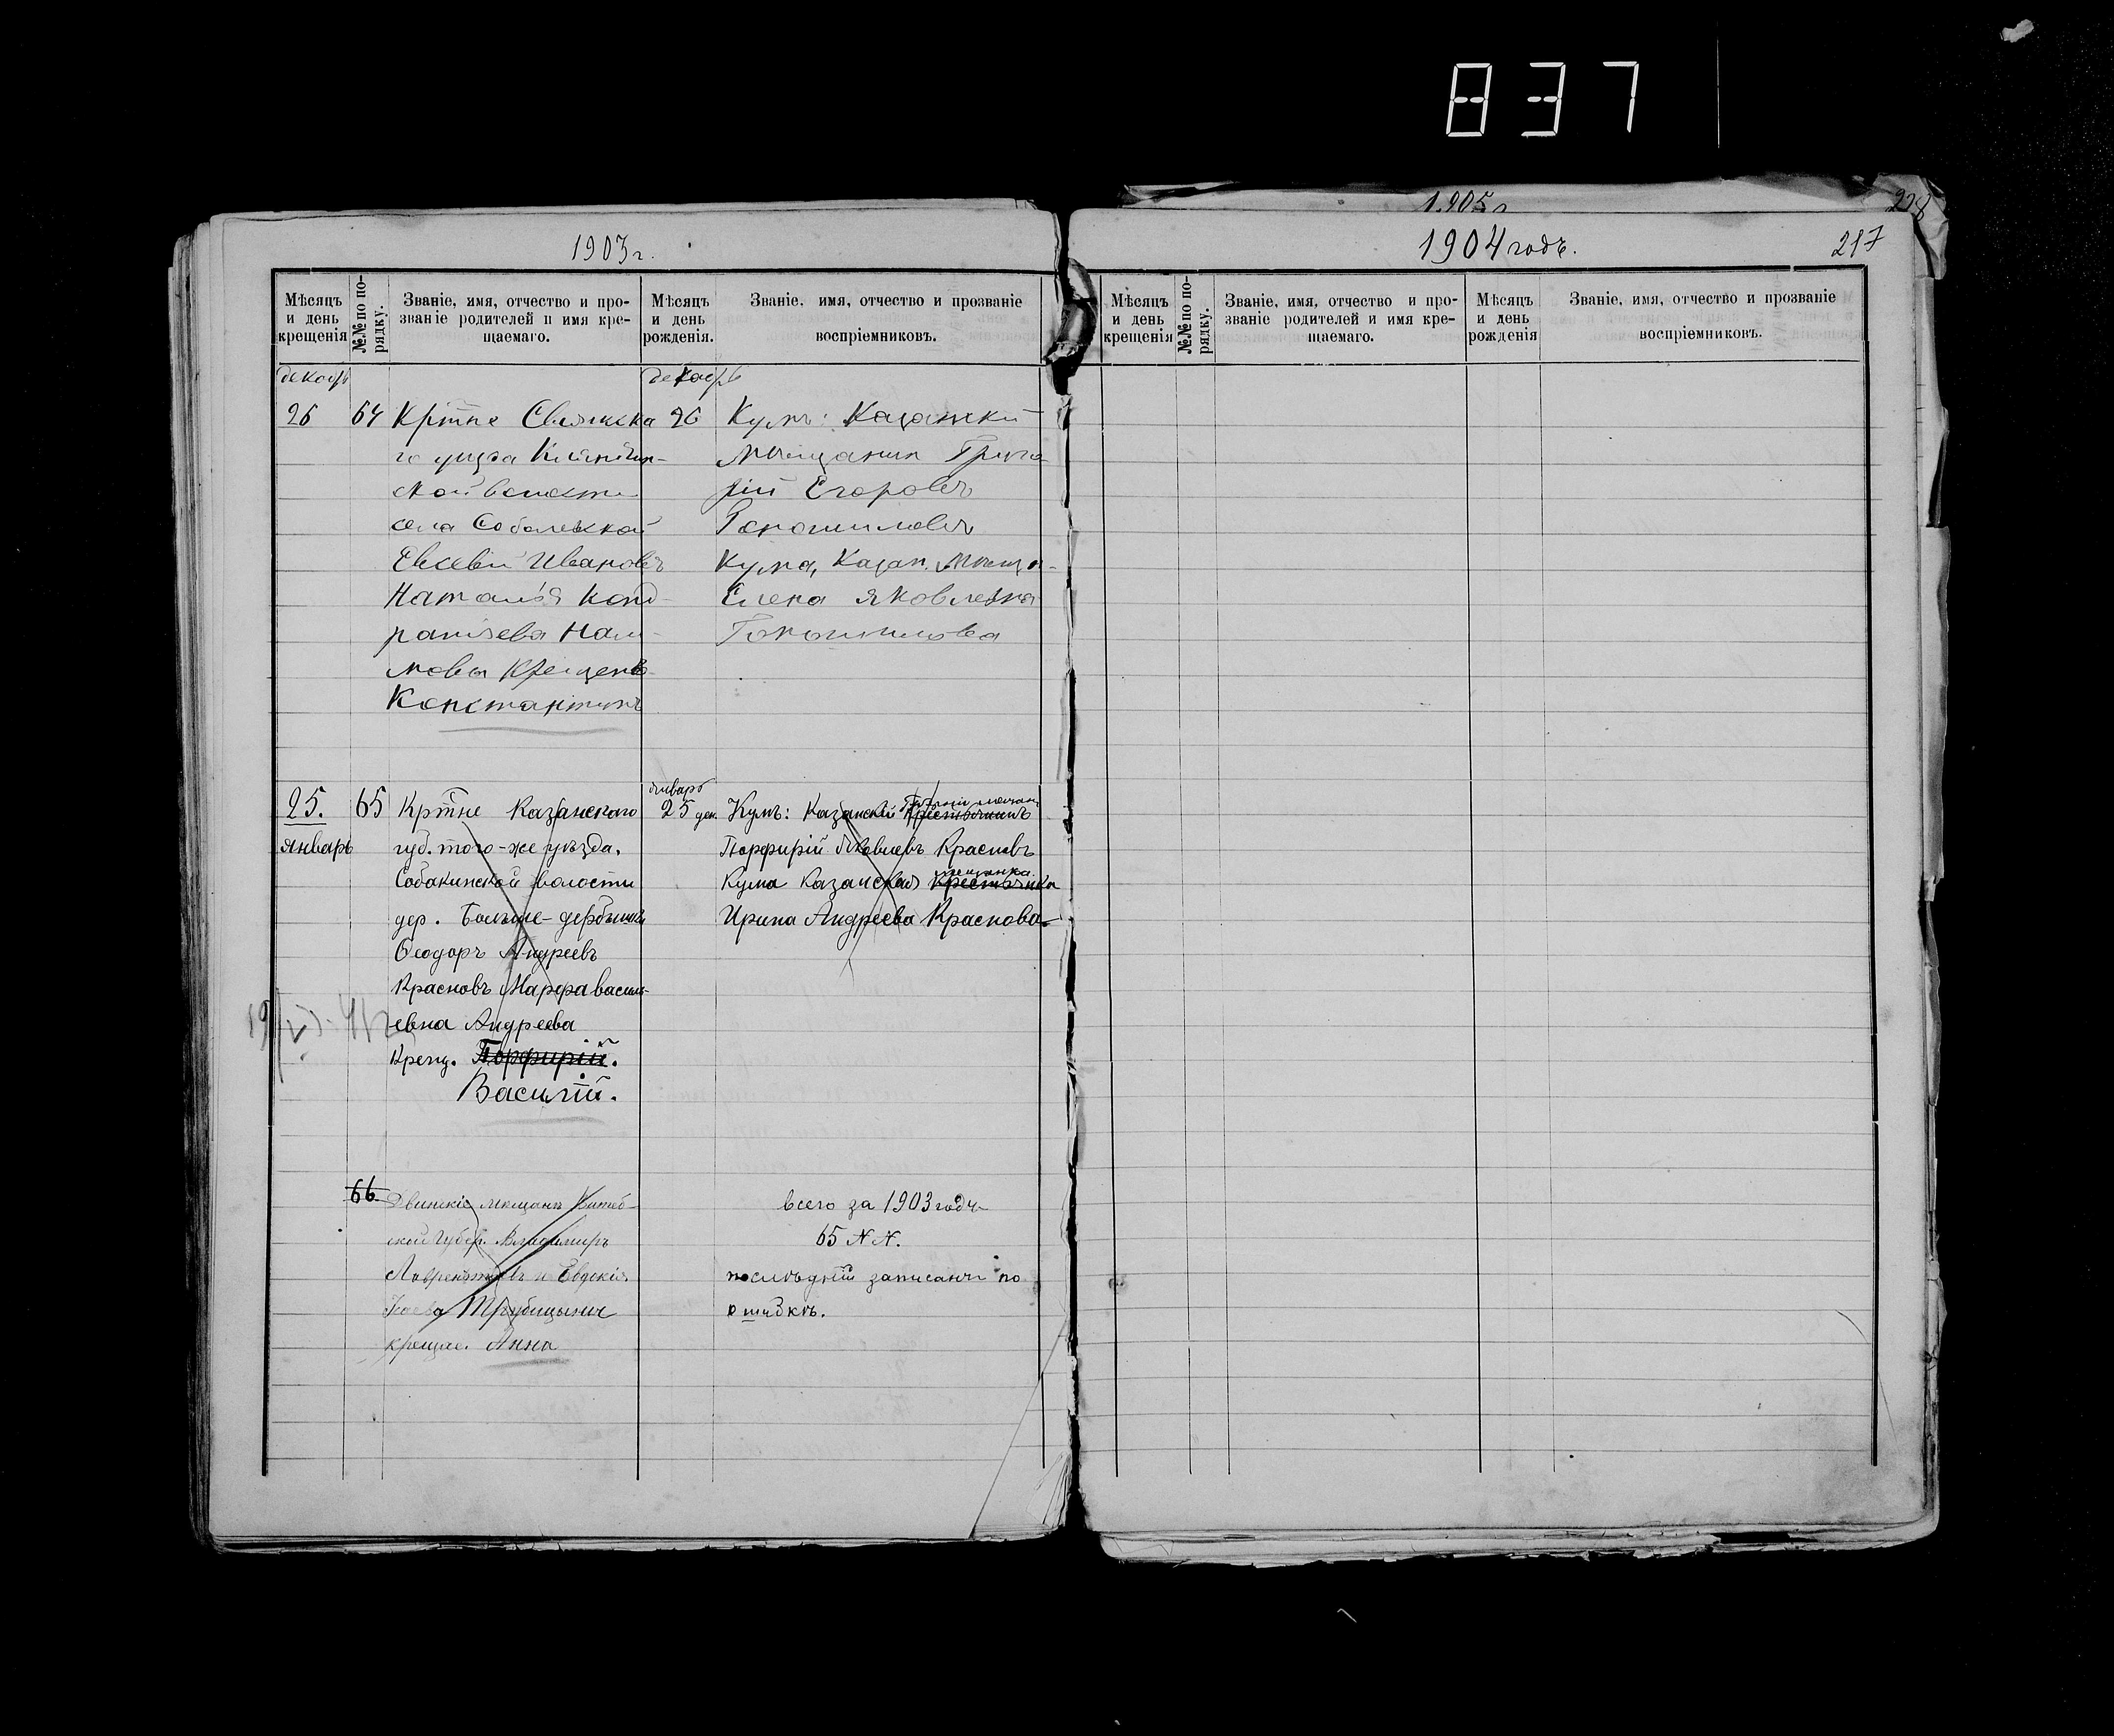 837
1905 г
228
1903 г.
Мѣсяцъ и день крещенія
№№ по порядку.
Званіе, имя, отчество и прозваніе родителей и имя крещаемаго.
Мѣсяцъ и день рожденія.
Званіе, имя, отчество и прозваніе воспріемниковъ.
декабрь
декабрь
26
64
Крт̃не Свіяжска
го уѣзда
ской волости
села Соболевской
Евсевій Ивановъ
Наталья Конд-
ратьева Нау-
мовы Крещенъ
Константинъ
26
Кумъ: Казанскій
мѣщанинъ Григо
рій Егоровъ
Кума, Казан. мѣща-
Елена Яковлевна
25.
январь
65
Крт̃не Казанскаго
губ. того-же уѣзда,
Собакинской волости
дер. Больше-дербышки
Ѳеодоръ Андреевъ
Красновъ Марѳа Василь-
евна Андреева
Крещ. Порфирій.
Василій.
январь
25 ден.
Кумъ: Казанскій Крестьянинъ
Порфирій Яковлевъ Красновъ
мещанка
Кума Казанская Крестьянка
Ирина Андреева Краснова
66
Двинскіе мещане Витеб-
ской Губер. Владимиръ
Лаврентьевъ и Евдокія
Трубицыны
крещае. Анна
всего за 1903 годъ
65 N N.
послѣдній записанъ по
ошибкѣ.
1904 годъ.
217
Мѣсяцъ и день крещенія
№№ по порядку.
Званіе, имя, отчество и прозваніе родителей и имя крещаемаго.
Мѣсяцъ и день рожденія
Званіе, имя, отчество и прозваніе воспріемниковъ.